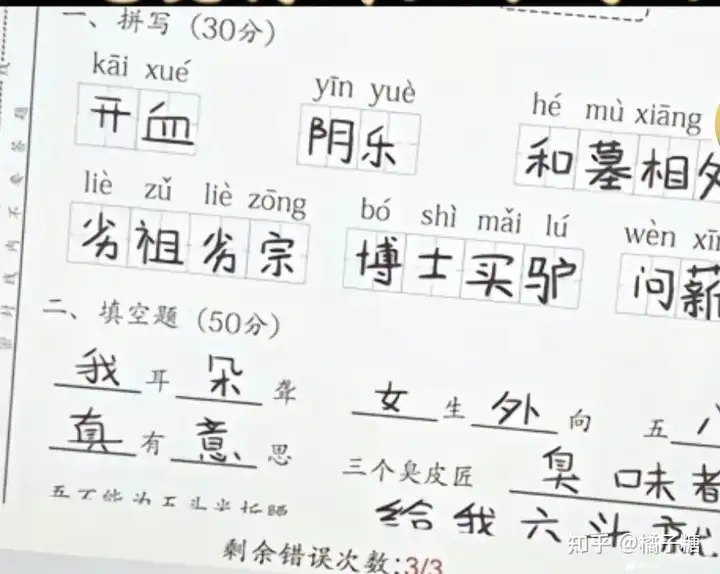 一、拼写（30分）
kāi xué yīn yuè hé mù xiāng
开血 阴乐 和墓相
liè zǔ liè zōng bó shì mǎi lú wèn
劣祖劣宗 博士买驴 问薪
二、填空题（50分）
我耳朵聋 女生外向 五八
真有意思 三个臭皮匠 臭味者
给我六斗
剩余错误次数:3/3
知乎 @橘子糖